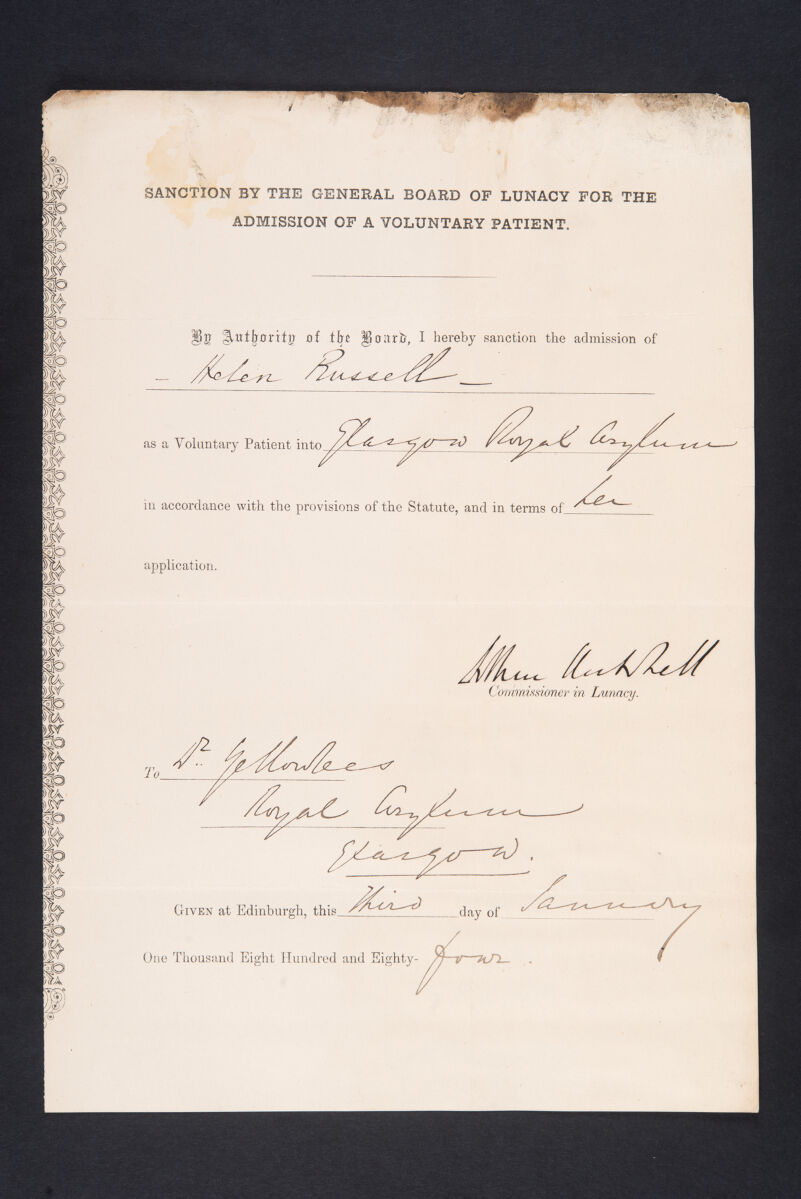 SANCTION BY THE GENERAL BOARD OF LUNACY FOR THE
ADMISSION OF A VOLUNTARY PATIENT.
By Authority of the Board, I hereby sanction the admission of
– Helen Russell –
as a Voluntary Patient into Glasgow Royal Asylum
in accordance with the provisions of the Statute, and in terms of her
application.
Arthur Mitchell
Commissioner in Lunacy.
To Dr. Yellowlees
Royal Asylum
Glasgow.
GIVEN at Edinburgh, this Third day of January
One Thousand Eight Hundred and Eighty-four.